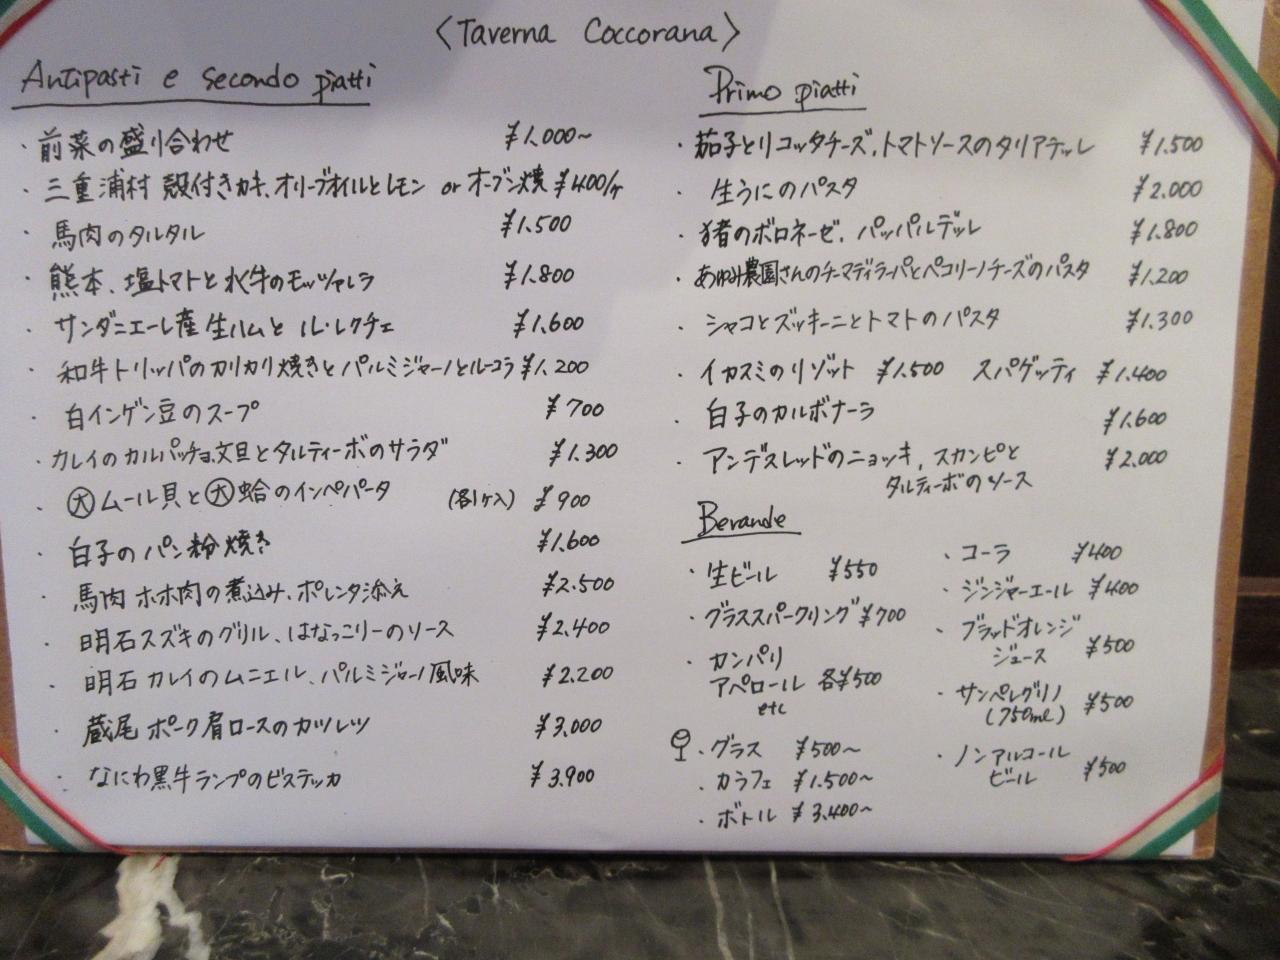 〈Taverna Coccorana〉
Antipasti e secondo piatti
・前菜の盛り合わせ ¥1,000~
・三重浦村 殻付きカキ、オリーブオイルとレモン or オーブン焼 ¥400/ヶ
・馬肉のタルタル ¥1,500
・熊本、塩トマトと水牛のモッツァレラ ¥1,800
・サンダニエーレ産生ハムと ル・レクチェ ¥1,600
・和牛トリッパのカリカリ焼きとパルミジャーノとルーコラ ¥1,200
・白インゲン豆のスープ ¥700
・カレイのカルパッチョ、文旦とタルティーボのサラダ ¥1,300
・大ムール貝と大蛤のインペパータ (各1ヶ入) ¥900
・白子のパン粉焼き ¥1,600
・馬肉ホホ肉の煮込み、ポレンタ添え ¥2,500
・明石スズキのグリル、はなっこりーのソース ¥2,400
・明石カレイのムニエル、パルミジャーノ風味 ¥2,200
・蔵尾ポーク肩ロースのカツレツ ¥3,000
・なにわ黒牛ランプのビステッカ ¥3,900
Primo piatti
・茄子とリコッタチーズ、トマトソースのタリアテッレ ¥1,500
・生うにのパスタ ¥2,000
・猪のボロネーゼ、パッパルデッレ ¥1,800
・あゆみ農園さんのチーマディラーパとペコリーノチーズのパスタ ¥1,200
・シャコとズッキーニとトマトのパスタ ¥1,300
・イカスミのリゾット ¥1,500 スパゲッティ ¥1,400
・白子のカルボナーラ ¥1,600
・アンデスレッドのニョッキ、スカンピと ¥2,000
タルティーボのソース
Bevande
・生ビール ¥550
・グラススパークリング ¥700
・カンパリ
アペロール 各¥500
etc
・グラス ¥500~
・カラフェ ¥1,500~
・ボトル ¥3,400~
・コーラ ¥400
・ジンジャーエール ¥400
・ブラッドオレンジ
ジュース ¥500
・サンペレグリノ
(750ml) ¥500
・ノンアルコール
ビール ¥500